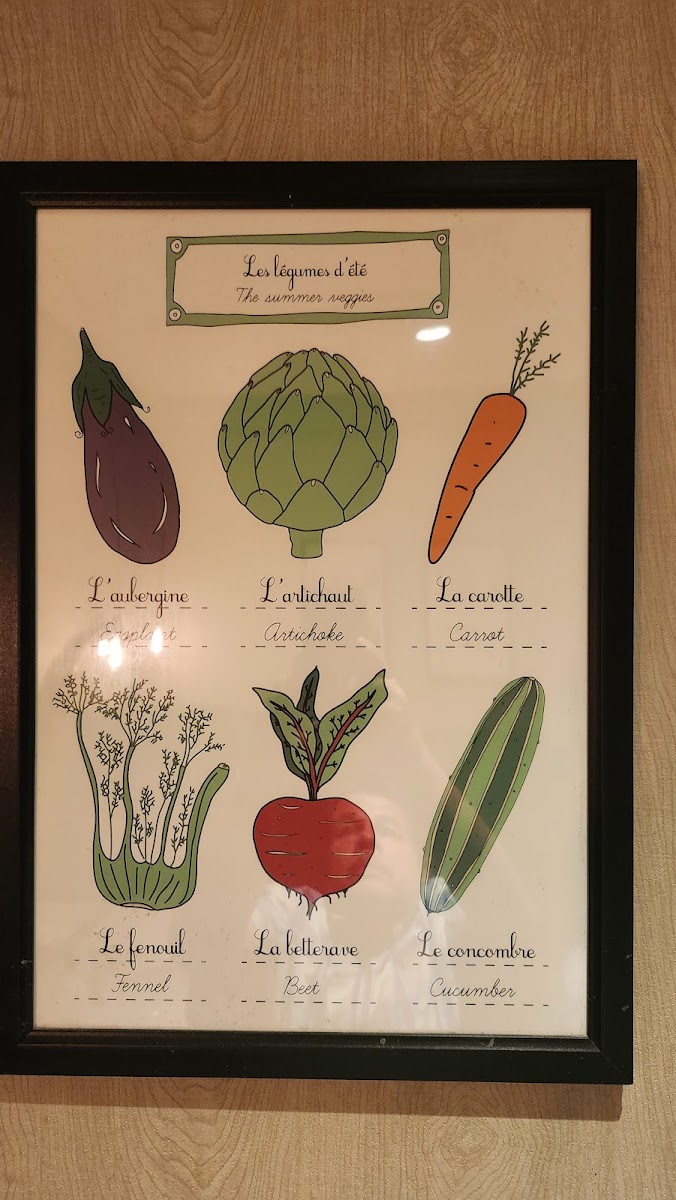 Les légumes d'été
The summer veggies
L'aubergine
L'artichaut
La carotte
Eggplant
Artichoke
Carrot
Le fenouil
La betterave
Le concombre
Fennel
Beet
Cucumber